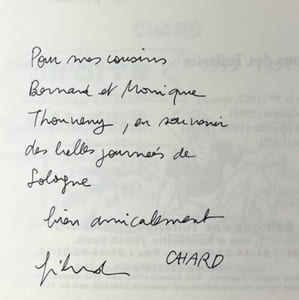 Pour mes cousins
Bernard et Monique
Thouveny, en souvenir
des belles journées de
Sologne
bien amicalement
CHARD